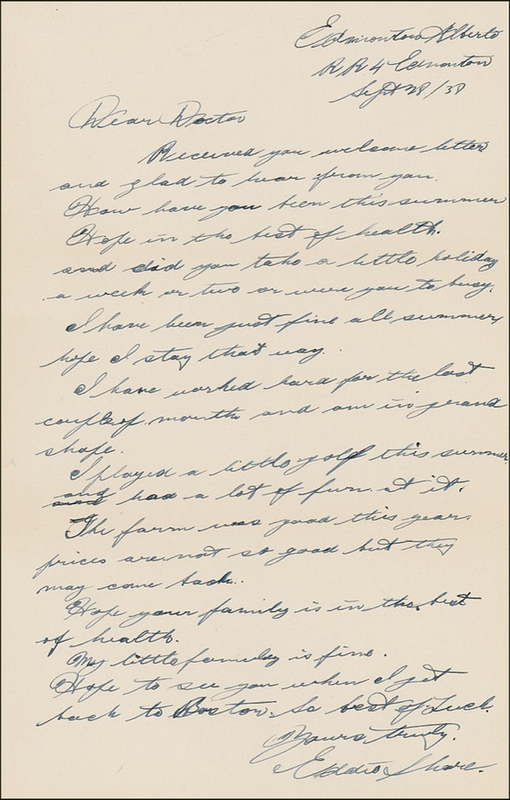 Edmonton Alberta
RR4 Edmonton
Sept 28/38
Dear Doctor
Received you welcome letter
and glad to hear from you.
How have you been this summer
Hope in the best of health.
and did you take a little holiday
a week or two or were you to busy.
I have been just fine all summer,
hope I stay that way.
I have worked hard for the last
couple of months and am in grand
shape.
I played a little golf this summer
and had a lot of fun at it.
The farm was good this year.
prices are not so good but they
may come back.
Hope your family is in the best
of health.
My little family is fine.
Hope to see you when I get
back to Boston. So best of Luck.
Yours truly.
Eddie Shore.